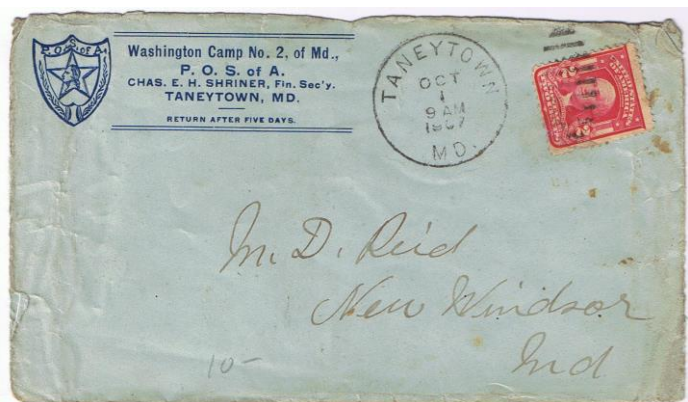 P.O.S. of A.
Washington Camp No. 2, of Md.,
P. O. S. of A.
CHAS. E. H. SHRINER, Fin. Sec'y.
TANEYTOWN, MD.
RETURN AFTER FIVE DAYS.
TANEYTOWN
OCT
1
9 AM
1907
MD.
M. D. Reid
New Windsor
Md
10-